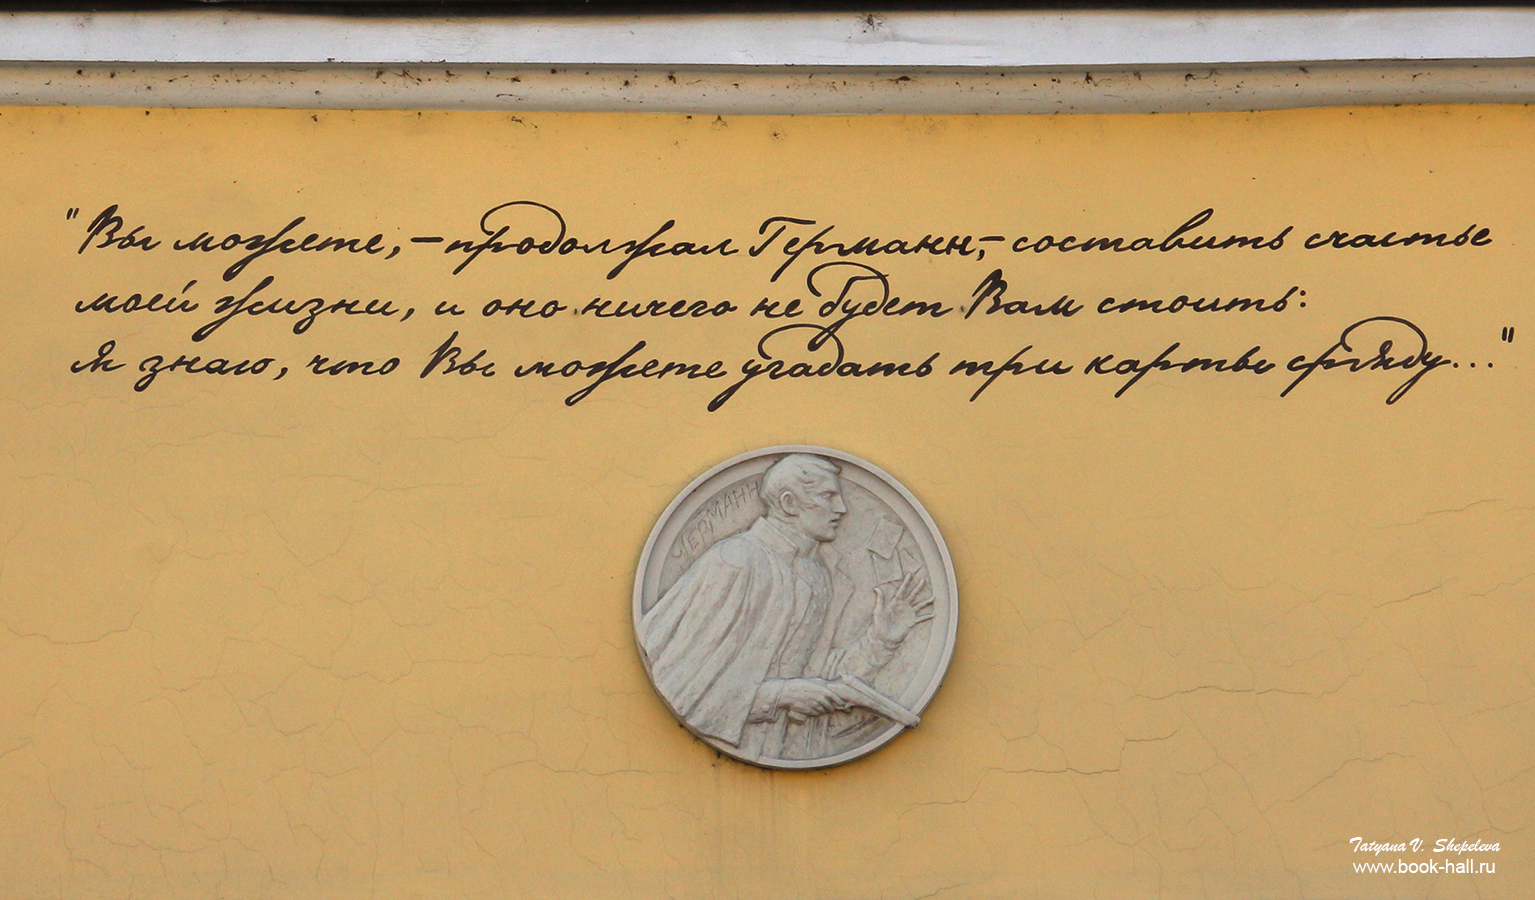 "Вы можете, – продолжал Германн, – составить счастье
моей жизни, и оно ничего не будет Вам стоить:
я знаю, что Вы можете угадать три карты сряду..."
ГЕРМАНН
Tatyana V. Shepeleva
www.book-hall.ru